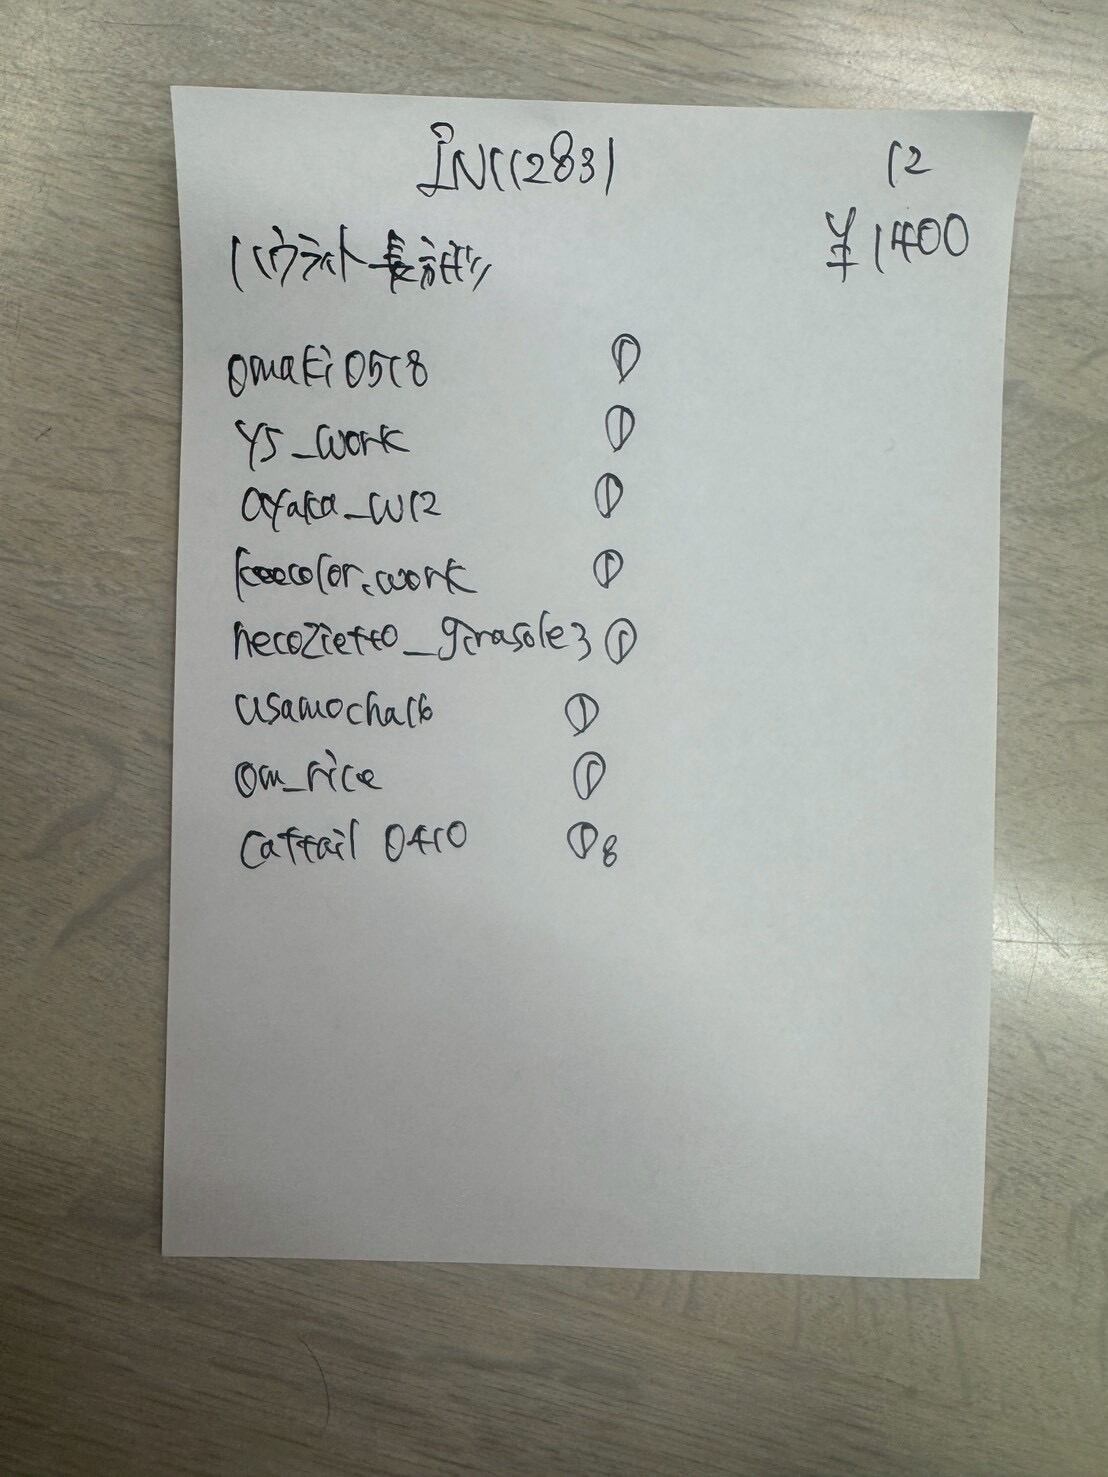 iN112831 12
パウンド長方形 ¥1400
omaki0518 ①
ys_work ①
ayaka_w12 ①
keecolor.work ①
necozietto_girasole3 ①
usamocha16 ①
om_rice ①
cattail 0410 ① 8